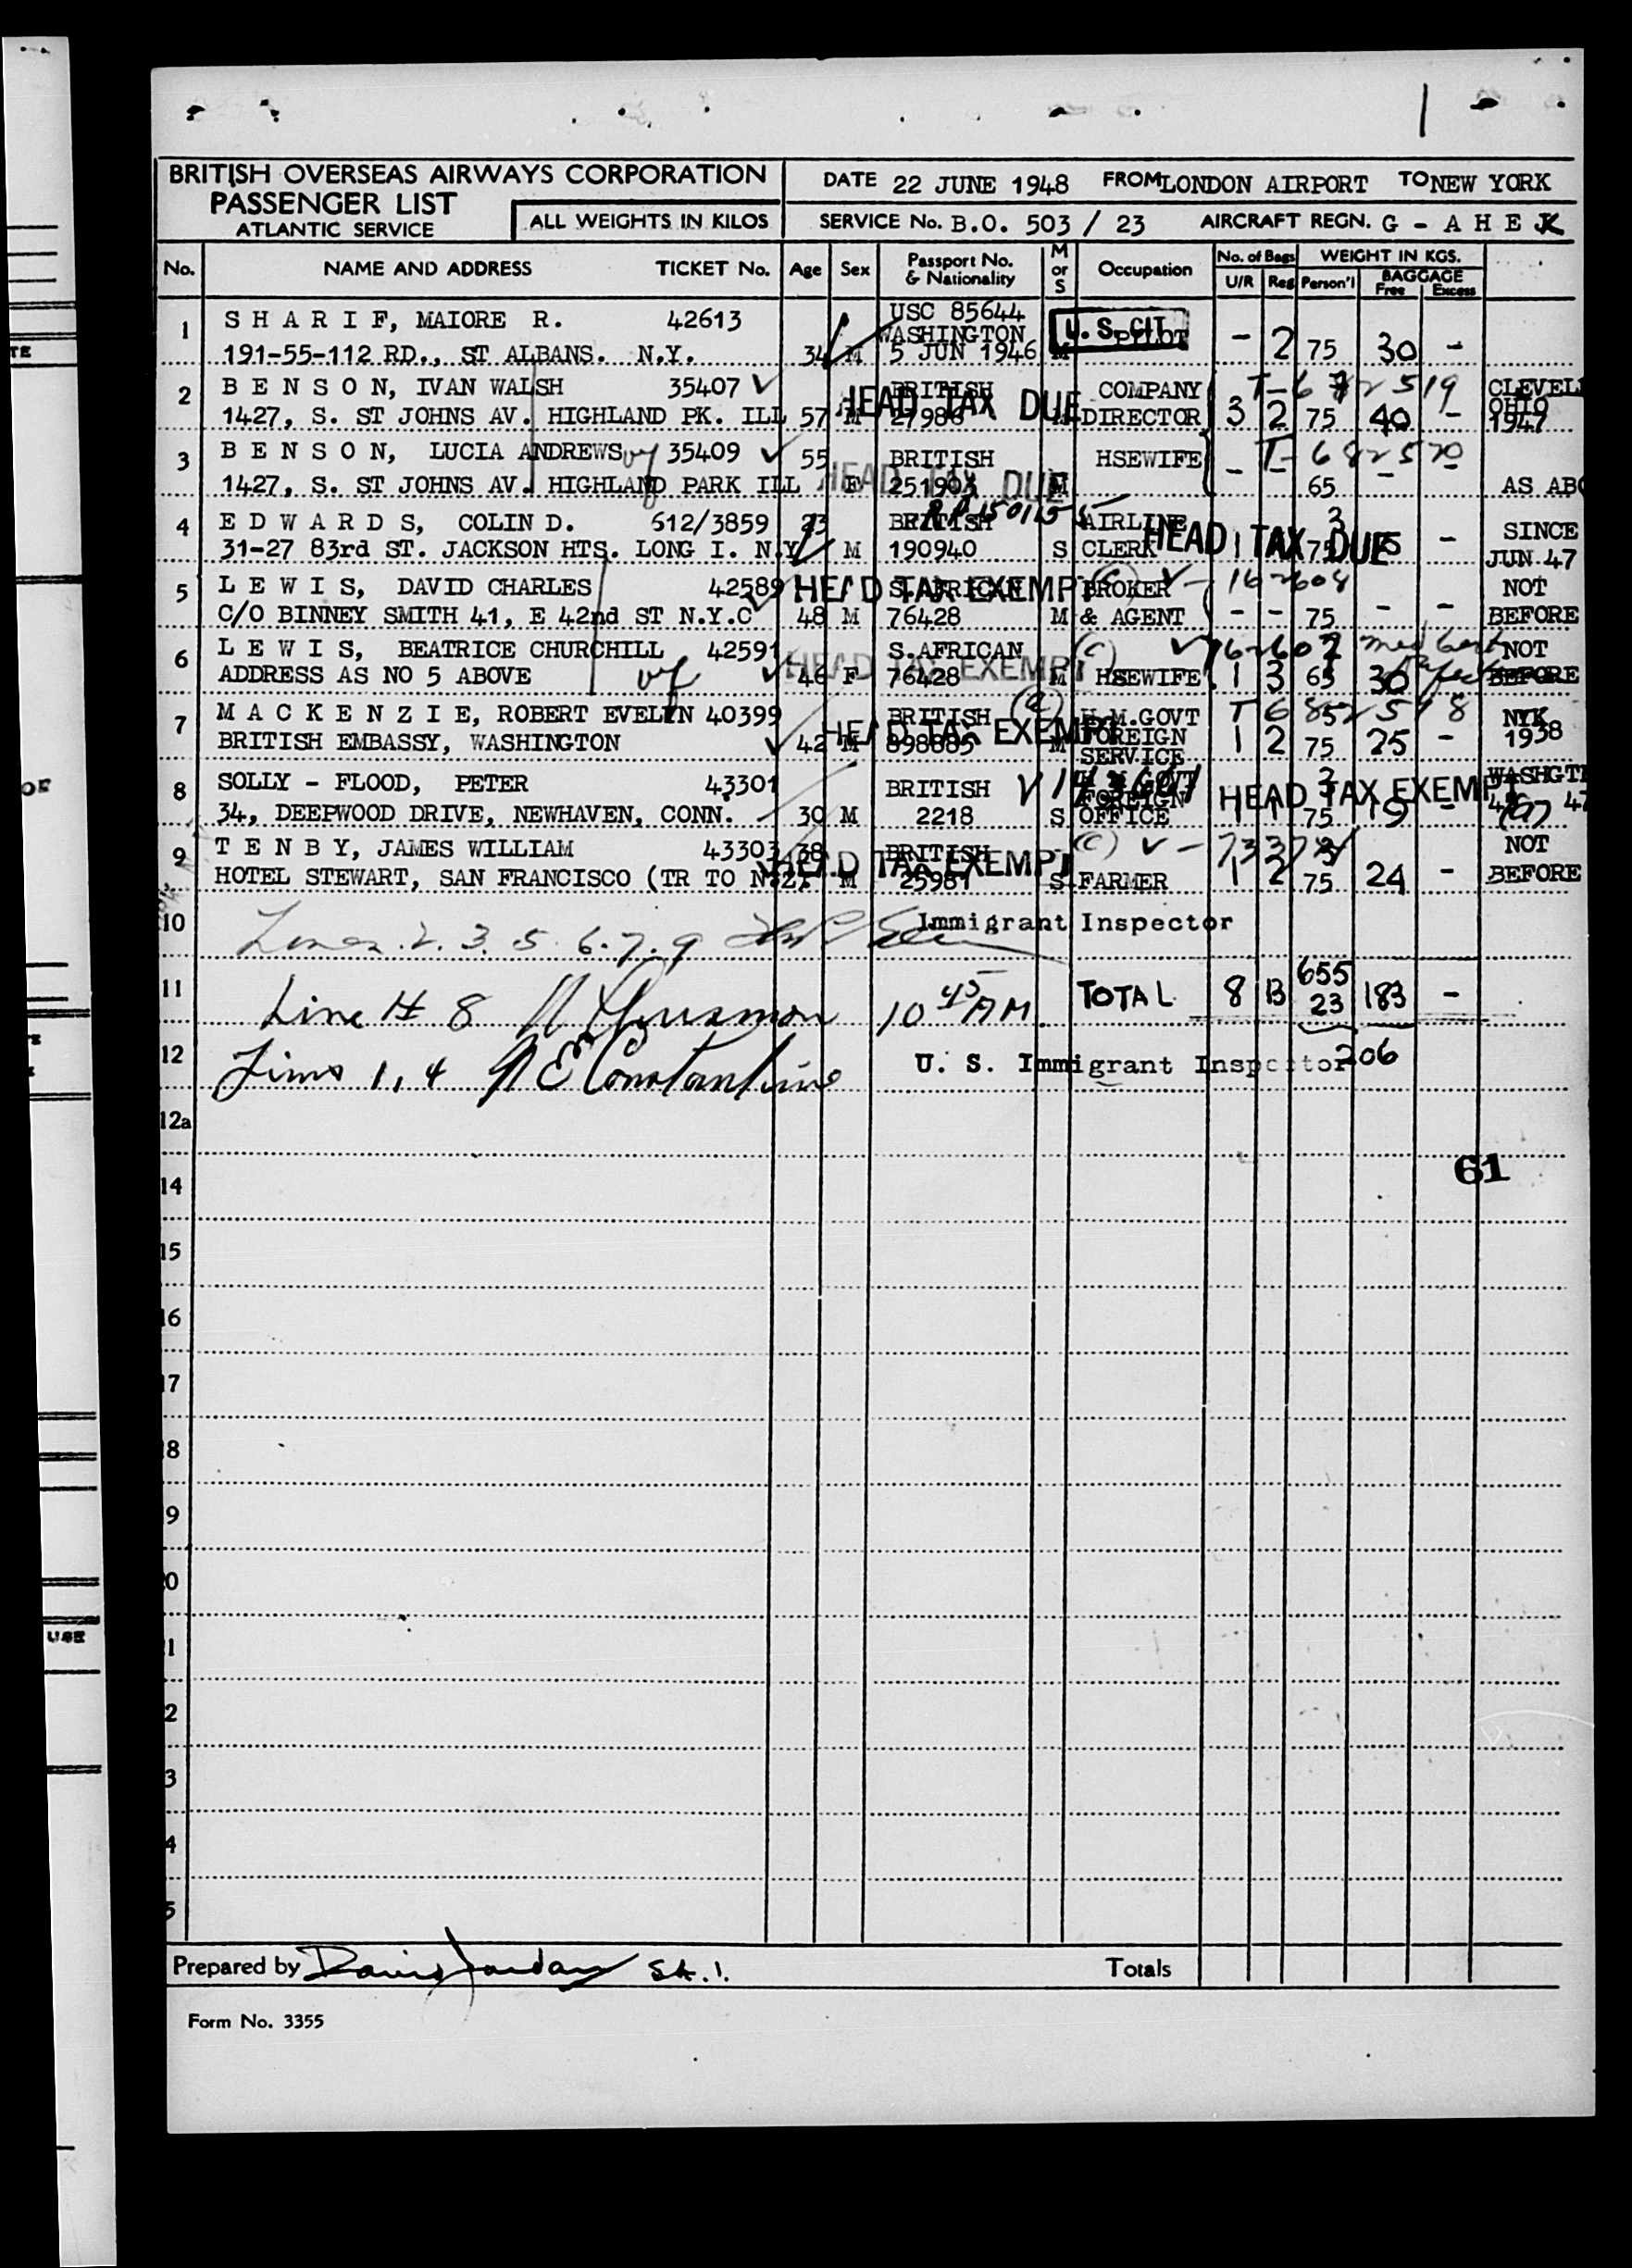 BRITISH OVERSEAS AIRWAYS CORPORATION
PASSENGER LIST
ATLANTIC SERVICE
ALL WEIGHTS IN KILOS
DATE 22 JUNE 1948 FROM LONDON AIRPORT TO NEW YORK
SERVICE No. B.O. 503 / 23 AIRCRAFT REGN. G - A H E K
No. NAME AND ADDRESS TICKET No. Age Sex Passport No. & Nationality M or S Occupation No. of Bags U/R Reg WEIGHT IN KGS. Person'l BAGGAGE Free Excess
1 S H A R I F, MAIORE R. 42613 USC 85644 WASHINGTON U. S. CIT PILOT - 2 75 30 -
191-55-112 RD., ST ALBANS. N.Y. 34 M 5 JUN 1946 M
2 B E N S O N, IVAN WALSH 35407 BRITISH COMPANY
1427, S. ST JOHNS AV. HIGHLAND PK. ILL 57 M 27986 HEAD TAX DUE DIRECTOR 3 2 75 40 - OHIO 1947
3 B E N S O N, LUCIA ANDREWS 35409 55 BRITISH HSEWIFE T-682520
1427, S. ST JOHNS AV. HIGHLAND PARK ILL F HEAD TAX DUE M - - 65 -
4 E D W A R D S, COLIN D. 612/3859 23 BRITISH AIRLINE SINCE
31-27 83rd ST. JACKSON HTS. LONG I. N.Y M 190940 S CLERK HEAD TAX DUE 75 - JUN 47
5 L E W I S, DAVID CHARLES 42589 HEAD TAX EXEMPT S.AFRICAN BROKER 16-608 NOT
C/O BINNEY SMITH 41, E 42nd ST N.Y.C 48 M 76428 M & AGENT - - 75 - - BEFORE
6 L E W I S, BEATRICE CHURCHILL 42591 S.AFRICAN (C) 16-607 NOT
ADDRESS AS NO 5 ABOVE HEAD TAX EXEMPT 46 F 76428 M HSEWIFE 1 3 65 30 BEFORE
7 M A C K E N Z I E, ROBERT EVELYN 40399 BRITISH H.M.GOVT NYK
BRITISH EMBASSY, WASHINGTON 42 M 898885 HEAD TAX EXEMPT M FOREIGN SERVICE 1 2 75 25 - 1938
8 SOLLY - FLOOD, PETER 43301 BRITISH FOREIGN HEAD TAX EXEMPT
34, DEEPWOOD DRIVE, NEWHAVEN, CONN. 30 M 2218 S OFFICE 1 1 75 19 -
9 T E N B Y, JAMES WILLIAM 43303 38 BRITISH (C) NOT
HOTEL STEWART, SAN FRANCISCO (TR TO N.Z). M 25981 HEAD TAX EXEMPT S FARMER 1 2 75 24 - BEFORE
10 Lines 2. 3. 5. 6. 7. 9 Immigrant Inspector
11 Line # 8 10 45 AM TOTAL 8 13 655 23 183 -
12 Lines 1, 4 N E Constantine U. S. Immigrant Inspector 206
12a
61
14
15
16
17
8
9
0
1
2
3
4
5
Prepared by David Jordan St. 1. Totals
Form No. 3355
TE
OF
USE